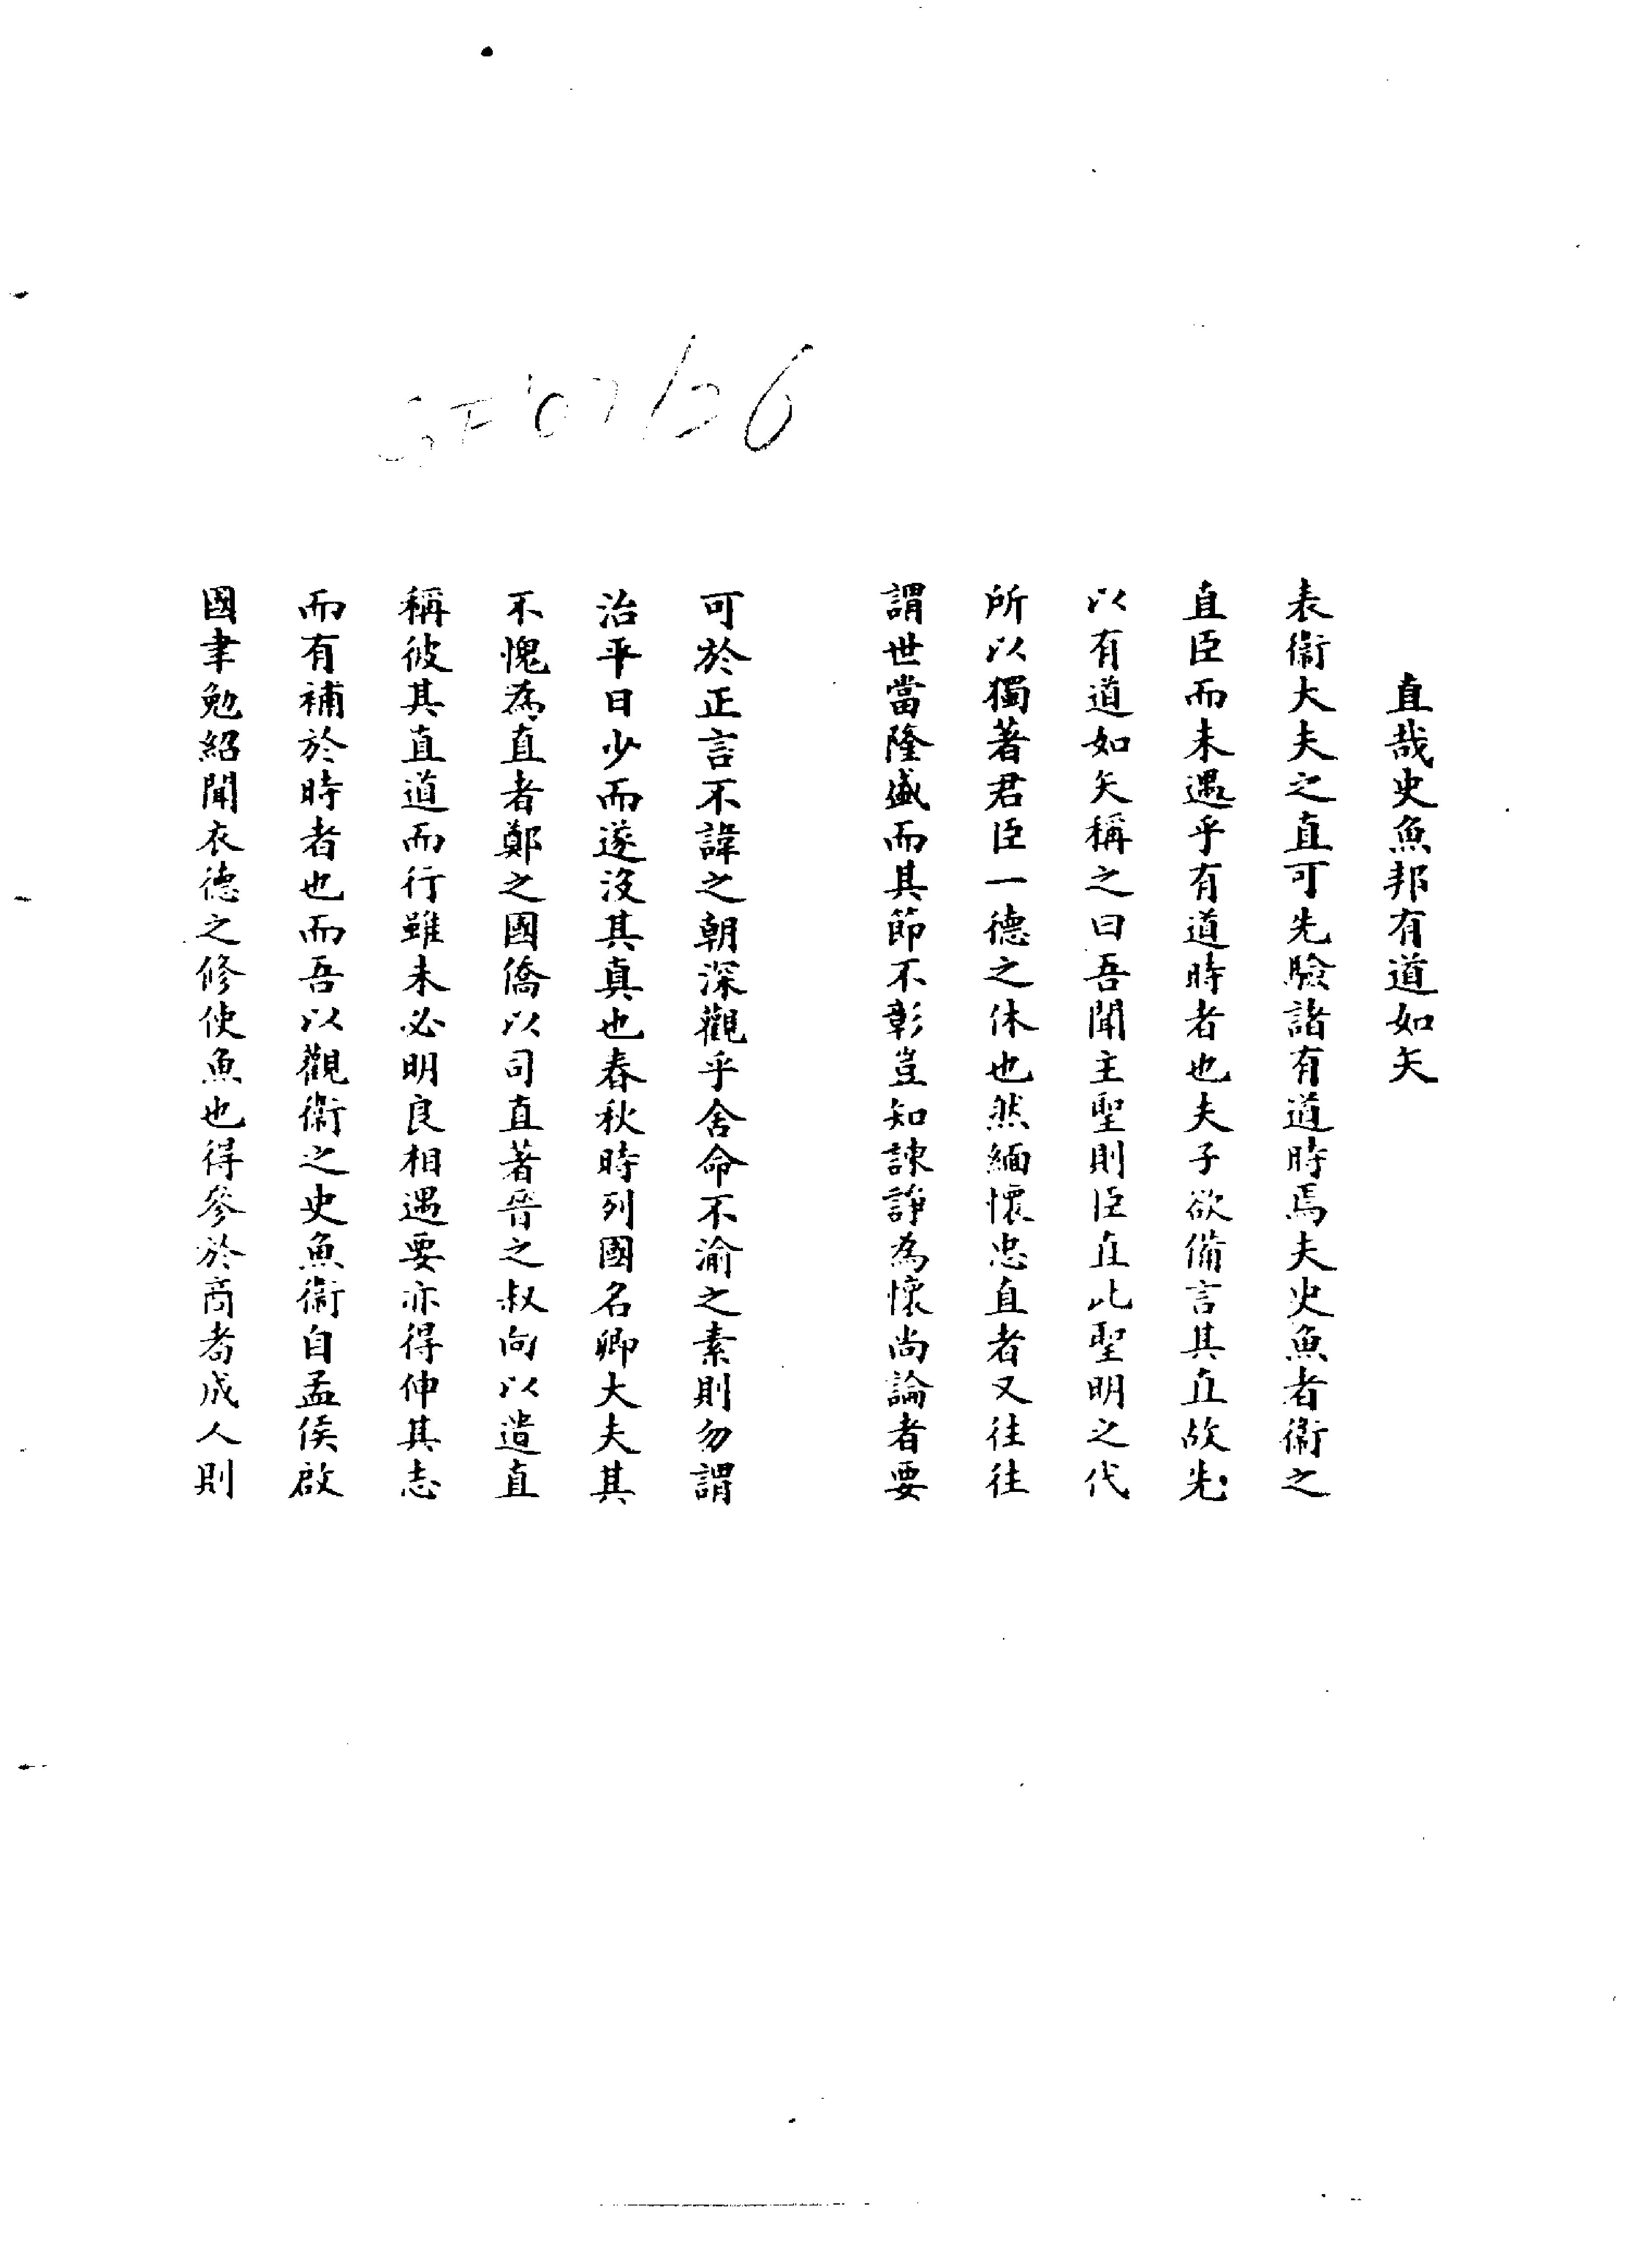 直哉史魚邦有道如矢
表衞大夫之直可先驗諸有道時焉夫史魚者衞之
直臣而未遇乎有道時者也夫子欲備言其直故先
以有道如矢稱之曰吾聞主聖則臣直此聖明之代
所以獨著君臣一德之休也然緬懷忠直者又往往
謂世當隆盛而其節不彰豈知諫諍為懷尚論者要
可於正言不諱之朝深觀乎舍命不渝之素則勿謂
治平日少而遂沒其真也春秋時列國名卿大夫其
不愧為直者鄭之國僑以司直著晉之叔向以遺直
稱彼其直道而行雖未必明良相遇要亦得伸其志
而有補於時者也而吾以觀衞之史魚衞自孟侯啟
國聿勉紹聞衣德之修使魚也得參於商耇成人則